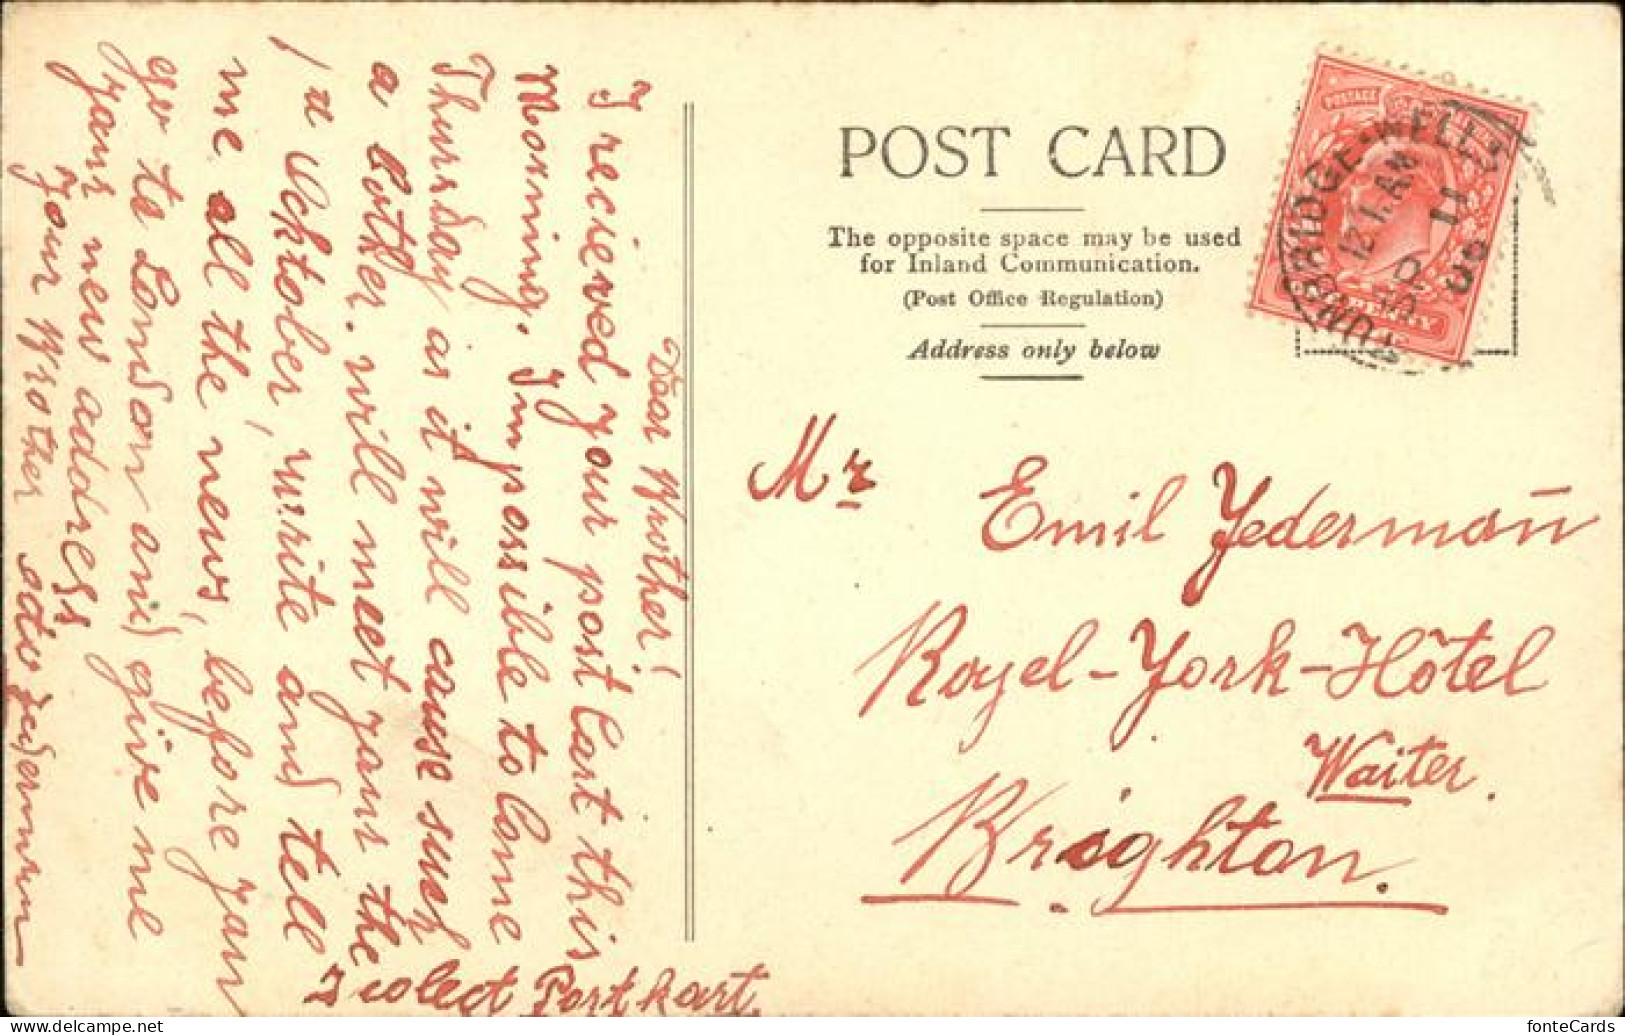 POST CARD
The opposite space may be used
for Inland Communication.
(Post Office Regulation)
Address only below
POSTAGE
TUNBRIDGE-WELLS
12 1. AM
11
05
Mr Emil Jedermann̄
Royel-York-Hôtel
Waiter.
Brighton.
Dear Wrother!
I recieved your post Cart this
Morning. Impossible to Come
Thursday as it will cause such
a bother. will meet your the
1 u Ocktober, write and tell
me all the news, before your
go to London and give me
your new address
Your Wrother Otto Jedermann
I colect Portkart.
fonteCards